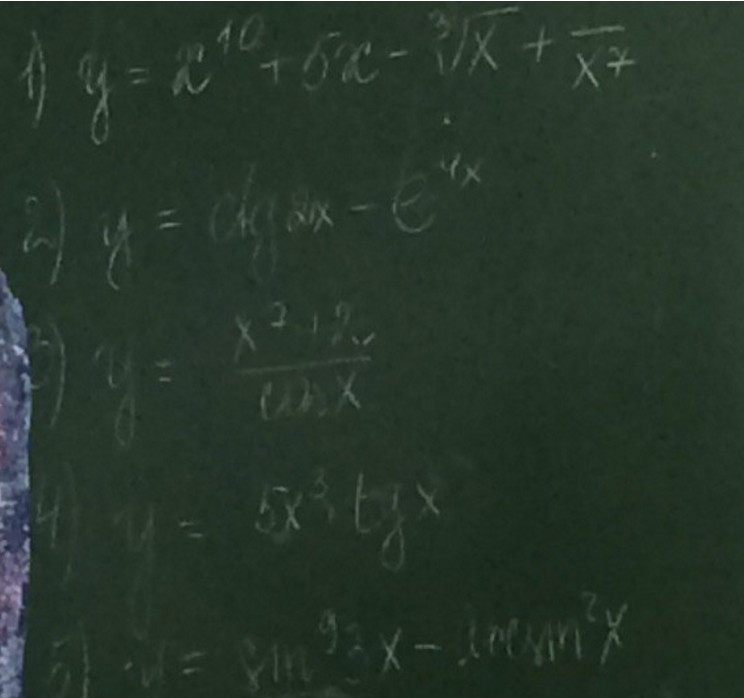 1) y = x¹⁰ + 5x - ³√x + 1/x⁷
2) y = ctg 2x - e⁴ˣ
3) y = (x⁷ + 2x)/cos x
4) y = 5x³ · tg x
5) y = sin⁹3x - arcsin²x